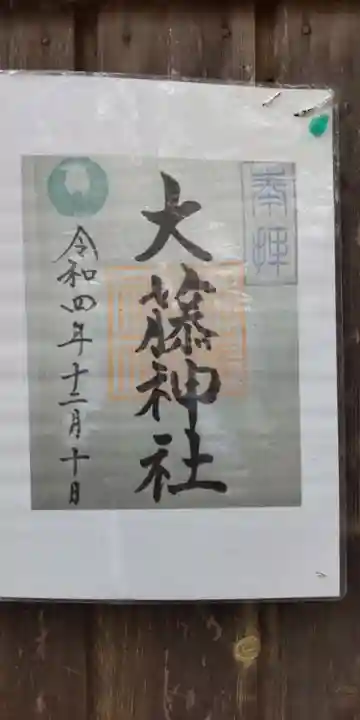 奉拝
大藤神社
令和四年十二月十日